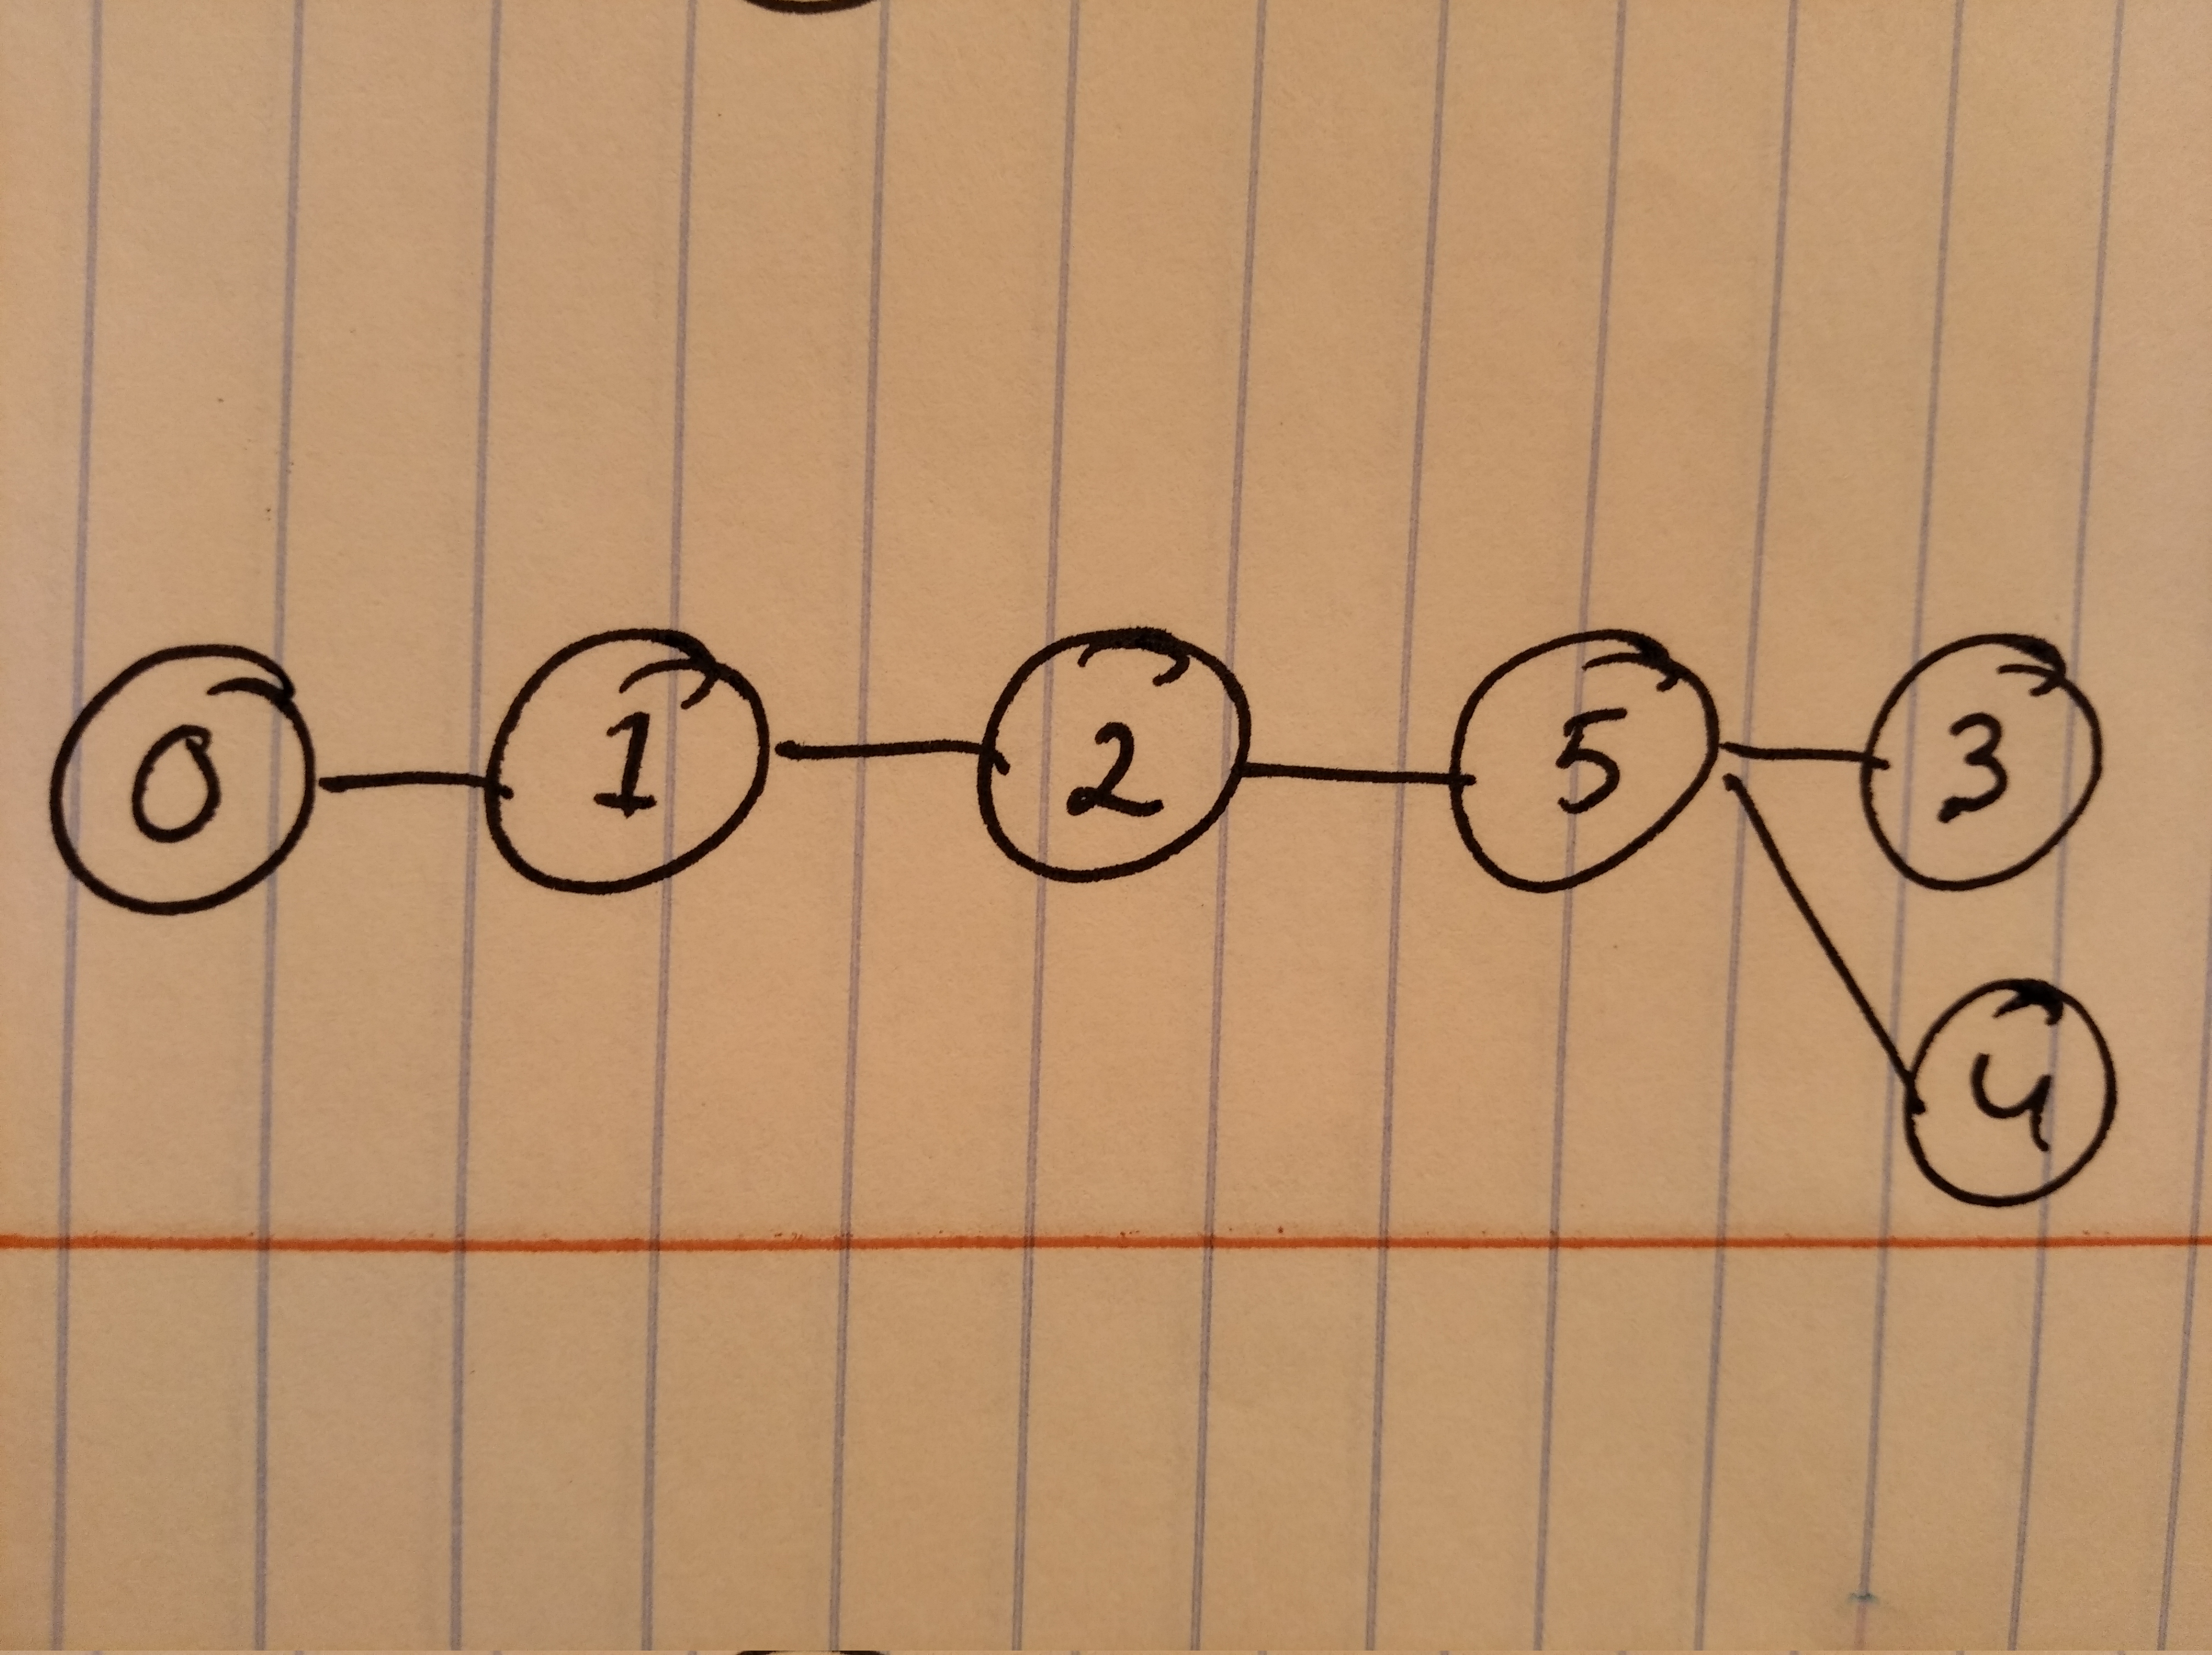 0 1 2 5 3
4